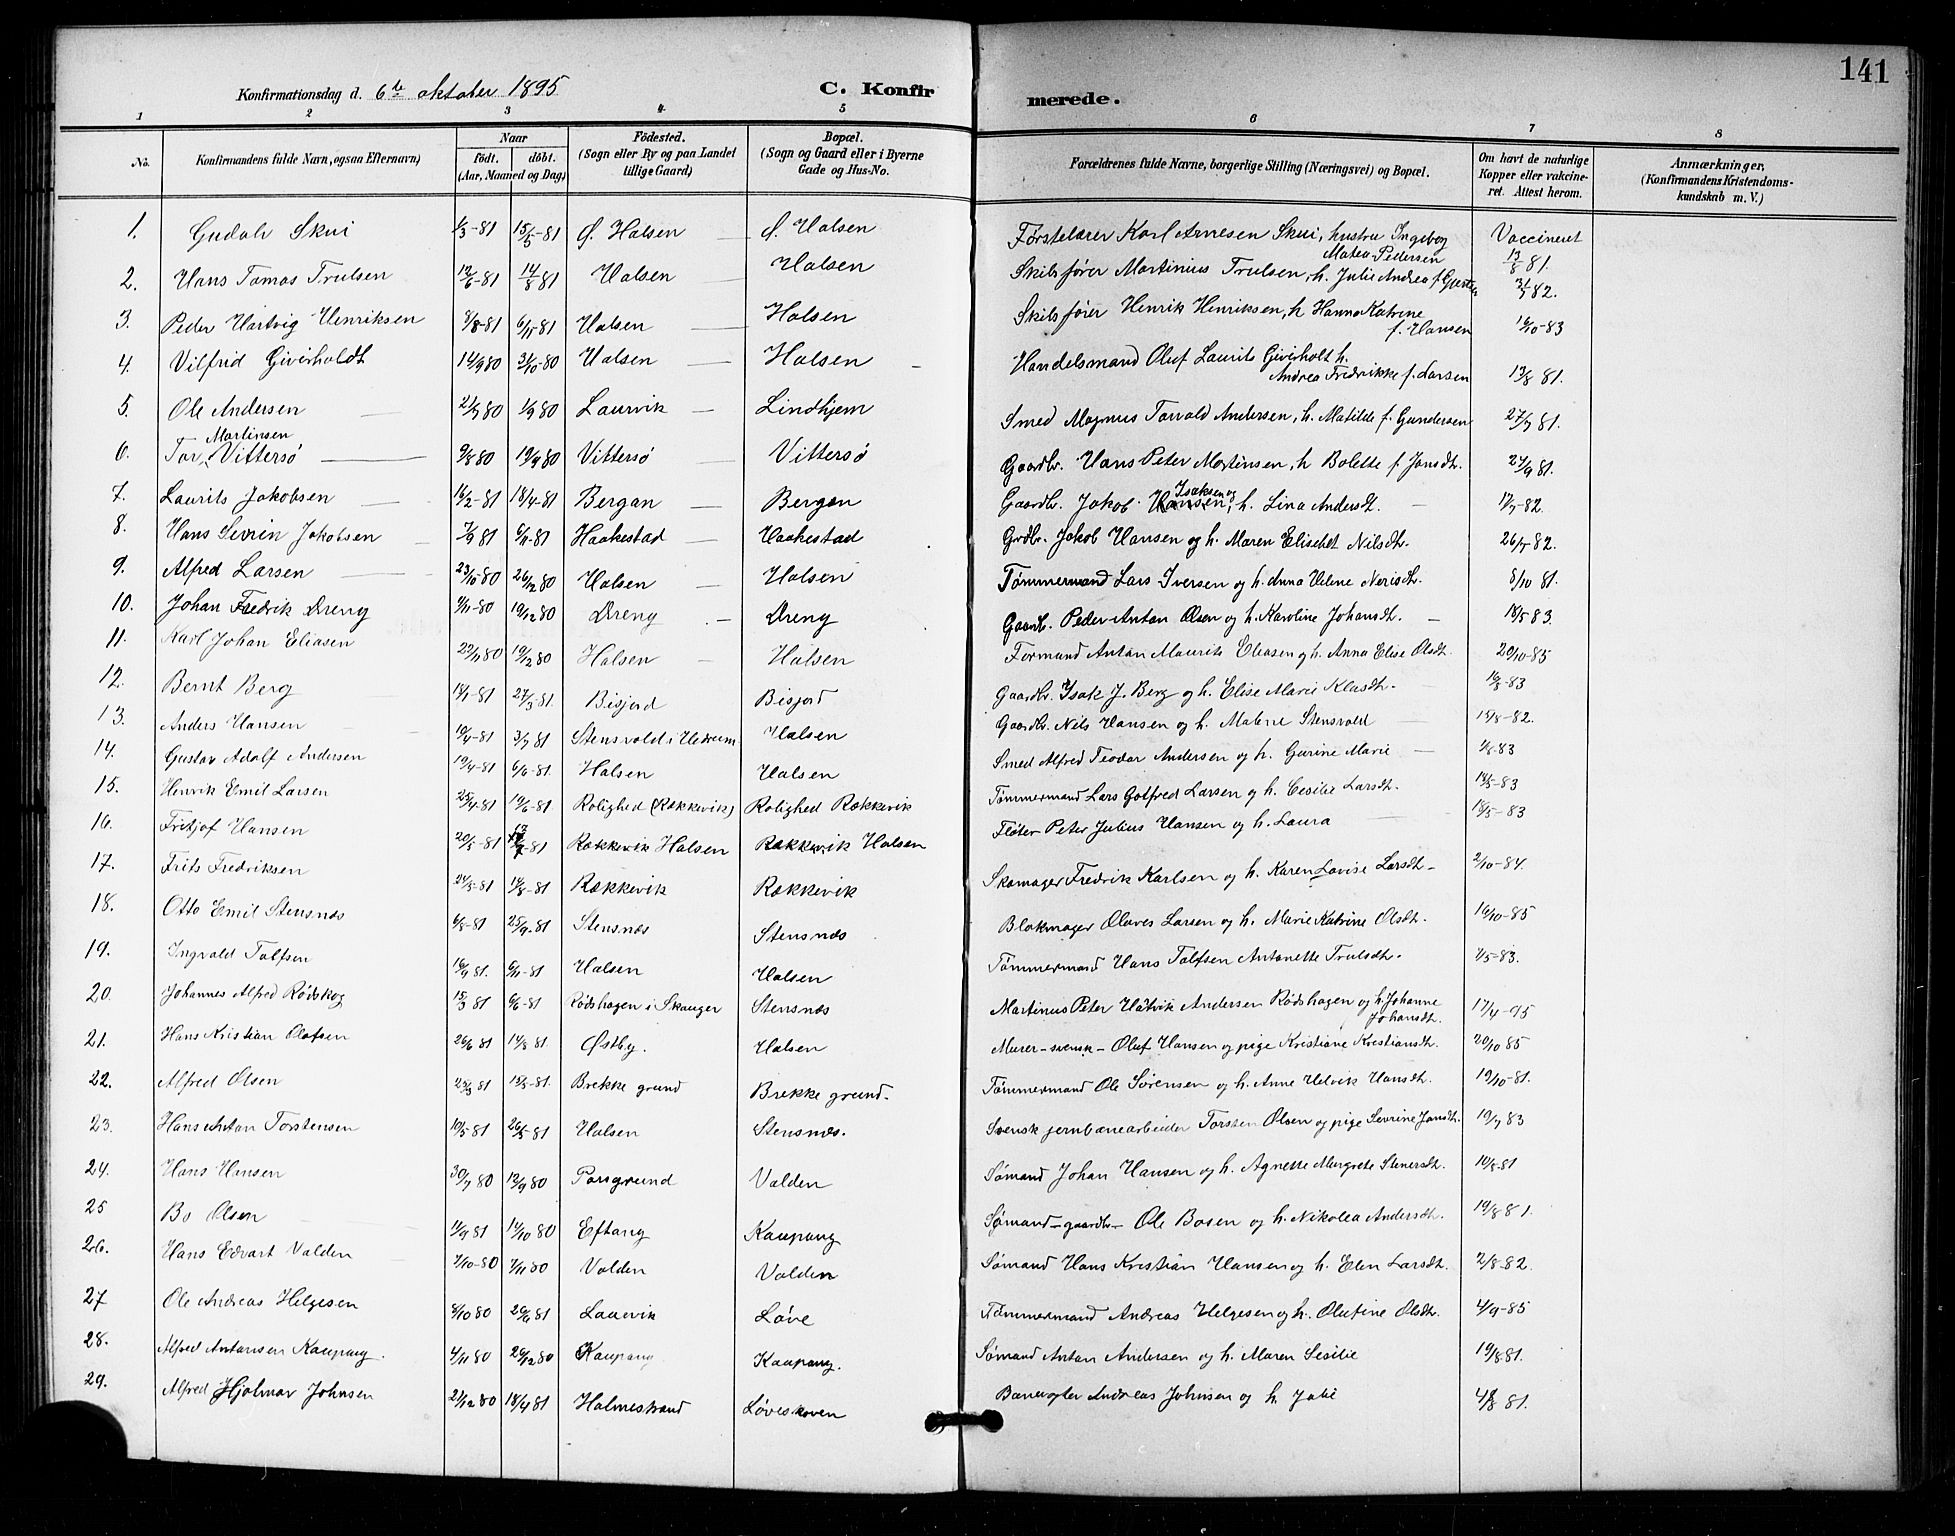 141
Konfirmationsdag d. 6te oktober 1895 C. Konfirmerede.
1 2 3 4 5 6 7 8
No. Konfirmandens fulde Navn, ogsaa Efternavn) Naar födt. döbt. (Aar, Maaned og Dag) Födested. (Sogn eller By og paa Landet tillige Gaard) Bopæl. (Sogn og Gaard eller i Byerne Gade og Hus-No. Forældrenes fulde Navne, borgerlige Stilling (Næringsvei) og Bopæl. Om havt de naturlige Kopper eller vakcineret. Attest herom. Anmærkninger, (Konfirmandens Kristendomskundskab m. V.)
1. Gudolv Skui 1/3-81 15/5-81 Ø. Halsen Ø. Halsen Førstelærer Karl Arnesen Skui, hustru Ingebog Matea Pedersen Vaccineret 13/8 81.
2. Hans Tomas Trulsen 12/6-81 14/8 81 Halsen Halsen Skibsfører Martinius Trulsen, h. Julie Andrea f. 82.
3. Peder Hartvig Henriksen 8/8-81 6/11-81 Halsen Halsen Skibsfører Henrik Henriksen, h Hanna Katrine f. Hansen 16/10-83
4. Vilfrid Giverholdt 14/9 80 31/10-80 Halsen Halsen Handelsmand Oluf Laurits Giverholt h. Andrea Fredrikke f. Larsen 13/8 81.
5. Ole Andersen 21/7 80 1/9 80 Laurvik Lindhjem Smed Magnus Torvald Andersen, h. Matilde f. Gundersen 27/7 81.
6. Tor Martinsen Vittersø 9/8 80 19/9 80 Vittersø Vittersø Gaardbr. Hans Peter Martinsen, h Bolette f. Jansdt. 27/9 81.
7. Laurits Jakobsen 16/2-81 18/4-81 Bergan Bergan Gaardbr. Jakob Isaksen og h. Lina Andersdt. 17/7-82.
8. Hans Sevrin Jakobsen 7/9 81 6/11-81 Haakestad Haakestad Grdbr. Jakob Hansen og h. Maren Elisebet Nilsdt. 26/7 82.
9. Alfred Larsen 23/10-80 26/12 80 Halsen Halsen Tømmermand Lars Iversen og h. Anna Helene Norisdt. 8/10 81.
10. Johan Fredrik Dreng 9/11-80 19/12 80 Dreng Dreng Gaardb. Peder Anton Olsen og h. Karoline Johansdt. 18/5 83.
11. Karl Johan Eliasen 22/11 80 19/12 80 Halsen Halsen Formand Anton Maurits Eliasen og h. Anna Elise Olsdt. 20/10-85
12. Bernt Berg 18/1-81 27/3-81. Bisjord Bisjord Gaardbr. Isak J. Berg og h. Elise Marie Klasdt. 16/8-83
13. Anders Hansen 19/4-81 3/7 81 Stensvold i Hedrum Halsen Gaardbr. Nils Hansen og h. Malene Stensvold 15/8-82.
14. Gustav Adolf Andersen 19/4-81 6/6-81. Halsen Halsen Smed Alfred Teodor Andersen og h. Gurine Marie 83
15. Henrik Emil Larsen 25/4-81 19/6-81 Rolighed (Rækkevik) Rolighed Rækkevik Tømmermand Lars Gotfred Larsen og h. Cesilie Larsdt. 83
16. Fritjof Hansen 20/5-81 81 Rækkevik Halsen Rækkevik Halsen Fløter Peter Julius Hansen og h. Laura 16/5-83
17. Frits Fredriksen 24/5-81 14/8-81 Rækkevik Rækkevik Skomager Fredrik Karlsen og h. Karen Lovise Larsdt. 2/10-84.
18. Otto Emil Stensnæs 6/8-81 25/9-81 Stensnæs Stensnæs Blokmager Olaves Larsen og h. Marie Katrine Olsdt. 16/10-85
19. Ingvald Tolfsen 16/9 81. 6/11-81 Halsen Halsen Tømmermand Hans Tolfsen Antonette Trulsdt. 1/5-83.
20. Johannes Alfred Rødskog 15/3 81 6/6-81 Rødshagen i Skauger Stensnæs Martinus Peter Andersen Rødshagen og h. Johanne Johansdt. 17/4-95
21. Hans Kristian Olafsen 26/6 81 14/8 81. Østby. Halsen Murer - svensk - Oluf Hansen og pige Kristiane Kristiansdt. 20/10 85
22. Alfred Olsen 25/3 81 15/5-81. Brekke grund Brekke grund. Tømmermand Ole Sørensen og h. Anne Helvik Hansdt. 19/10-81.
23. Hans Anton Torstensen 10/5-81 26/5-81 Halsen Stensnæs. Svensk jernbanearbeider Torsten Olsen og pige Sevrine Jansdt. 19/7 83
24. Hans Hansen 30/7 80 12/9 80 Porsgrund Valden Sømand Johan Hansen og h. Agnette Margrete Stenersdt. 10/8-81
25 Bo Olsen 11/9 81 17/10 80 Eftang Kaupang Sømand - gaardbr - Ole Bosen og h. Nikolea Andersdt. 19/8 81.
26. Hans Edvart Valden 7/10-80 7/11 80 Valden Valden Sømand Hans Kristian Hansen og h. Elen Larsdt. 2/8-82.
27 Ole Andreas Helgesen 9/10 80 20/6 81 Laurvik Løve Tømmermand Andreas Helgesen og h. Olufine Olsdt. 4/9-85
28. Alfred Antonsen Kaupang. 4/11 80 26/12 80 Kaupang Kaupang. Sømand Anton Andersen og h. Maren Sesilie 19/8 81.
29. Alfred Hjalmar Johnsen 21/12 80 18/4 81 Holmestrand Løveskoven Banevogter Andreas Johnsen og h. Julie 81.